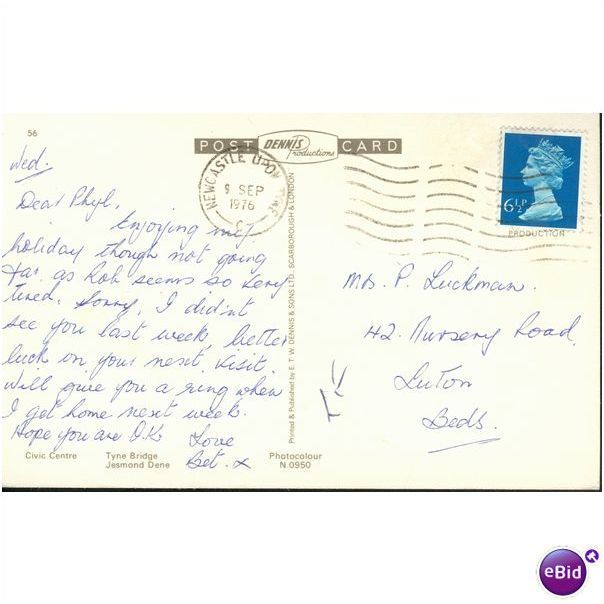 56
POST DENNIS Productions CARD
NEWCASTLE UPON TYNE
9 SEP
1976
C
6½P
PRODUCTION
Wed.
Dear Phyl,
Enjoying my
holiday though not going
far as Rob seems so very
tired. Sorry, I didn't
see you last week, better
luck on your next visit.
Will give you a ring when
I get home next week.
Hope you are O.K. Love
Bet. x
Printed & Published by E. T. W. DENNIS & SONS LTD., SCARBOROUGH & LONDON
Mrs. P. Luckman.
42. Nursery Road,
Luton
Beds.
Civic Centre Tyne Bridge
Jesmond Dene
Photocolour
N.0950
eBid